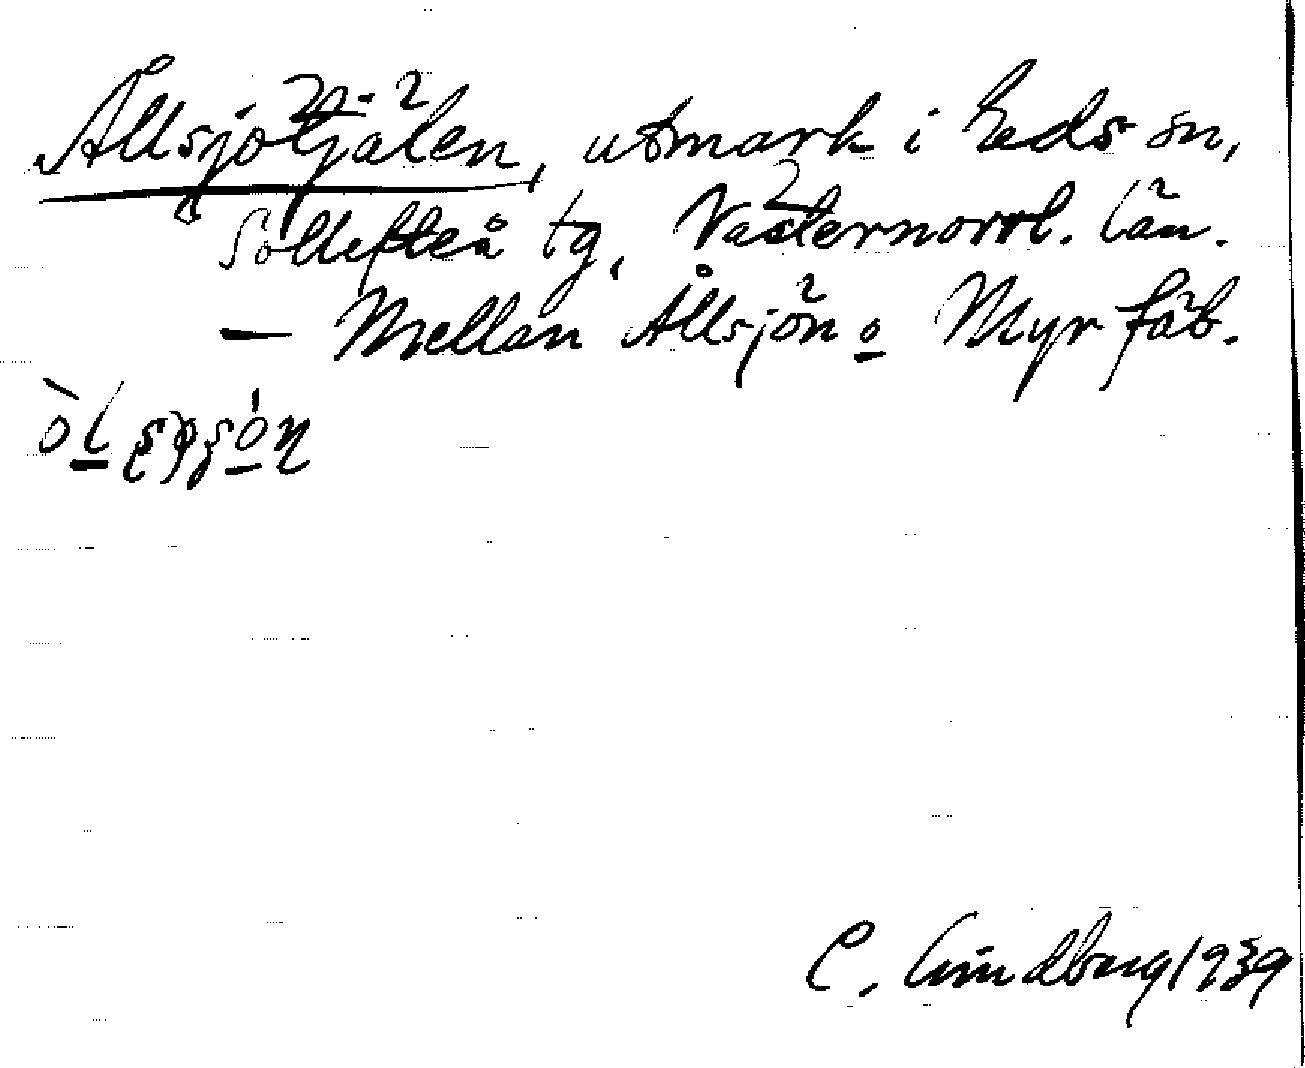 Ållsjötjälen, utmark i Eds sn,
Sollefteå tg, Västernorrl. län.
— Mellan Ållsjön o Myr fäb.
C. Lindberg 1939